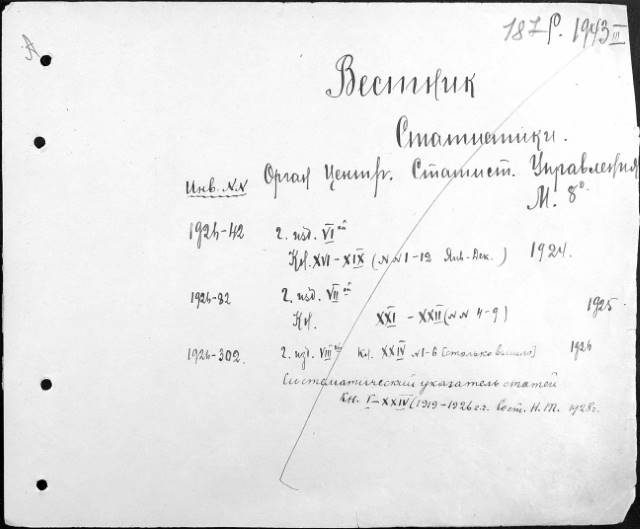 187 р. 1943 III
Вестник
Статистики.
Орган Центр. Статист. Управления
Инв. NN
М. 8°.
1924-42 г. изд. VI ый
Кн. XVI – XIX (NN 1-12 Янв-Дек.) 1924.
1926-82 г. изд. VII ый
Кн. XXI – XXII (NN 4-9) 1925
1926-302. г. изд. VIII Кн. XXIV N1-6 [столько вышло] 1926
Систематический указатель статей
Кн. I – XXIV (1919-1926 г.г. Сост. Н. М. 1928г.